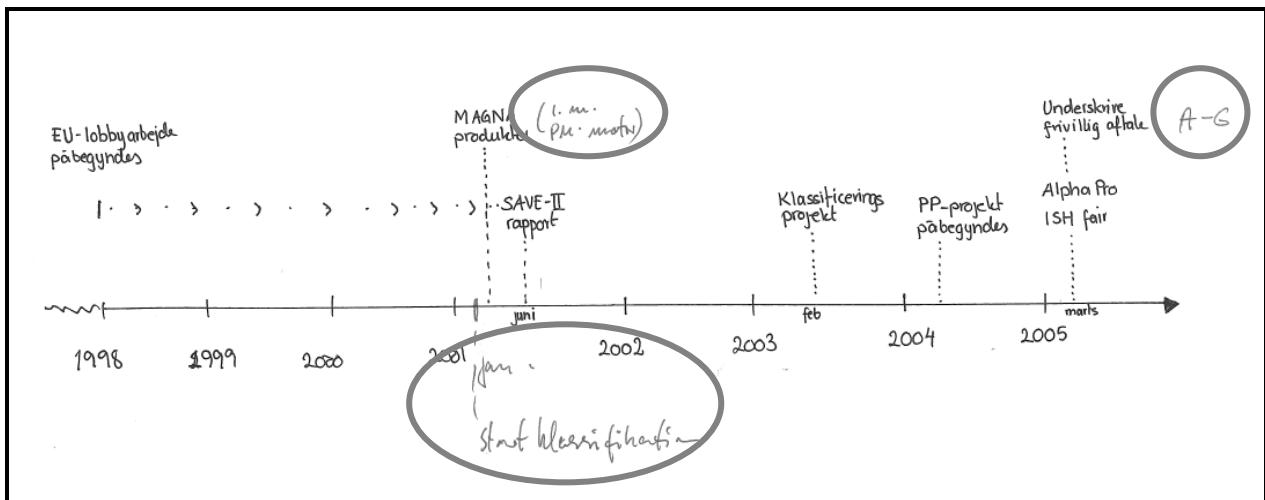 EU-lobbyarbejde
påbegyndes
MAGNA
produkter
(i.m.
PM-motor)
SAVE-II
rapport
Klassificerings
projekt
PP-projekt
påbegyndes
Underskrive
frivillig aftale
A-G
Alpha Pro
ISH fair
juni
feb
marts
1998
1999
2000
2001
2002
2003
2004
2005
Jan.
start klassifikation